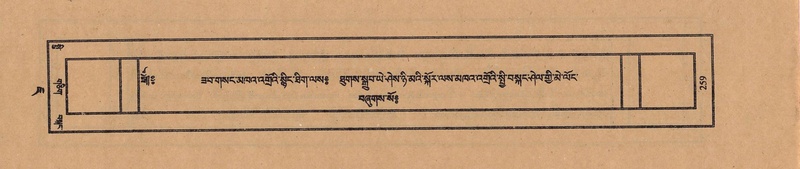 ཟབ་གསང་མཁའ་འགྲོའི་སྙིང་ཐིག་ལས༔ ཐུགས་སྒྲུབ་ཡེ་ཤེས་ཉི་མའི་སྐོར་ལས་མཁའ་འགྲོའི་སྤྱི་བསྐང་ཤེལ་གྱི་མེ་ལོང་
བཞུགས་སོ༔
གཅིག
259